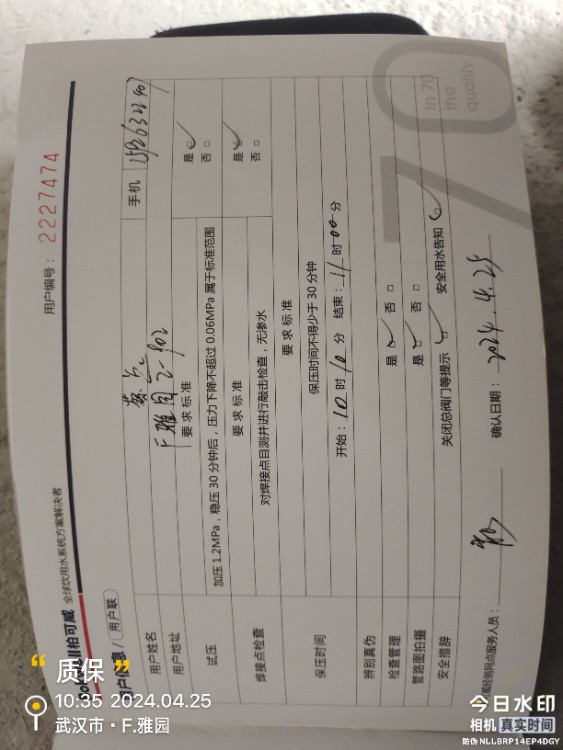 柏可威 全球饮用水系统方案解决者
用户编号: 2227474
用户信息 / 用户联
用户姓名
手机
用户地址 F.雅园 2-902
试压
要求标准
加压1.2MPa,稳压30分钟后,压力下降不超过0.06MPa属于标准范围
是 否
焊接点检查
要求标准
对焊接点目测并进行敲击检查,无渗水
是 否
保压时间
要求标准
保压时间不得少于30分钟
开始: 10 时 10 分 结束: 11 时 00 分
辨别真伪
检查管理 是 否
管路图拍摄 是 否
安全措辞 关闭总阀门等提示 安全用水告知
网点服务人员:
确认日期: 2024.4.25
70
In 70
the
quality
“质保”
10:35 2024.04.25
武汉市·F.雅园
今日水印
相机 真实时间
防伪 NLLBRP14EP4DGY